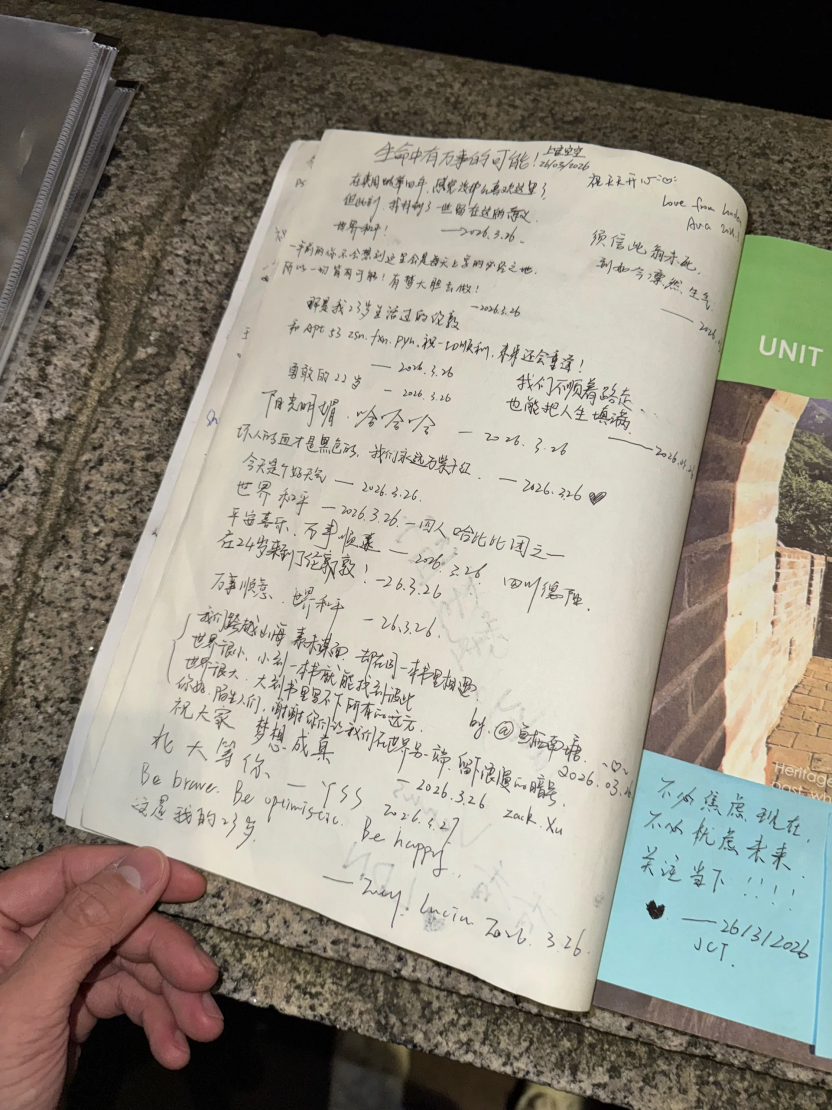 生命中有万事的可能！
26/03/2026
祝天天开心
Love from London
Ava
在英国的第四年，感觉没什么喜欢这里了
但此刻，我找到了一些留在这的意义
世界和平！
—2026.3.26
须信此翁未死，
到如今凛然生气
—2026.
一年前的你不会想到这里会是每天上学的必经之地，
所以一切皆有可能！有梦大胆去做！
—2026.3.26
解是我23岁生活过的伦敦
和Apt 53 zsn. fxn. pyn. 祝一切顺利，未来还会重逢！
—2026.3.26
勇敢的22岁
— 2026.3.26
我们不顺着路走
也能把人生填满
阳光明媚，哈哈哈 — 2026.3.26
—2026.03.26
坏人的血才是黑色的，我们永远万紫千红 — 2026.3.26 ♥
今天是个好天气 — 2026.3.26.
世界和平 — 2026.3.26. — 四人哈比比团之一
平安喜乐、万事顺遂 — 2026.3.26.
在24岁来到了伦敦！ —26.3.26
四川德阳
万事顺意、世界和平 —26.3.26.
我们跨越山海 素未谋面 却在同一本书里相遇
世界很小，小到一本书就能找到彼此
世界很大，大到书里写不下所有的远方
你好，陌生人们，谢谢你们让我们在世界另一端留下浪漫的暗号，
by. @
2026.03.26
祝大家 梦想成真
— 2026.3.26 Zack. Xu
北大等你 — YSS 2026.3.27
Be brave. Be optimistic. Be happy.
这是我的23岁.
— Lucia 2026. 3.26.
UNIT
Heritage
不必焦虑现在，
不必忧虑未来
关注当下！！！！
♥ —26/3/2026
JCT.